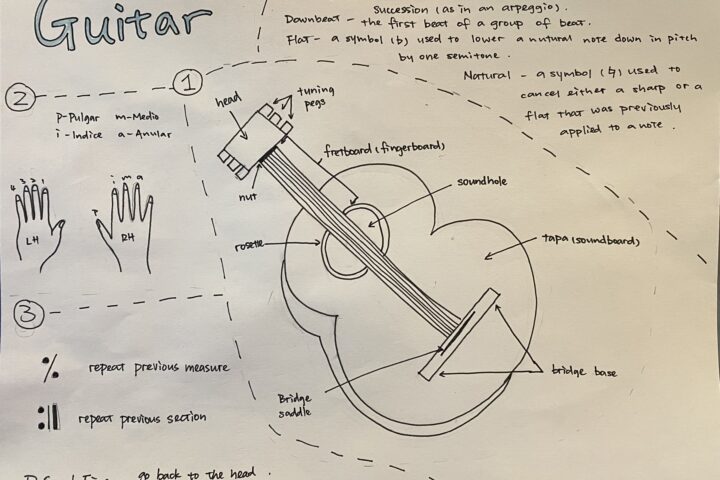 Guitar
succession (as in an arpeggio).
Downbeat - the first beat of a group of beat.
Flat - a symbol (b) used to lower a nutural note down in pitch
by one semitone.
Natural - a symbol (♮) used to
cancel either a sharp or a
flat that was previously
applied to a note.
①
head
tuning
pegs
fretboard (fingerboard)
nut
soundhole
rosette
tapa (soundboard)
Bridge
saddle
bridge base
②
P-Pulgar m-Medio
i-Indice a-Anular
4 3 2 1
LH
P i m a
RH
③
repeat previous measure
repeat previous section
go back to the head.